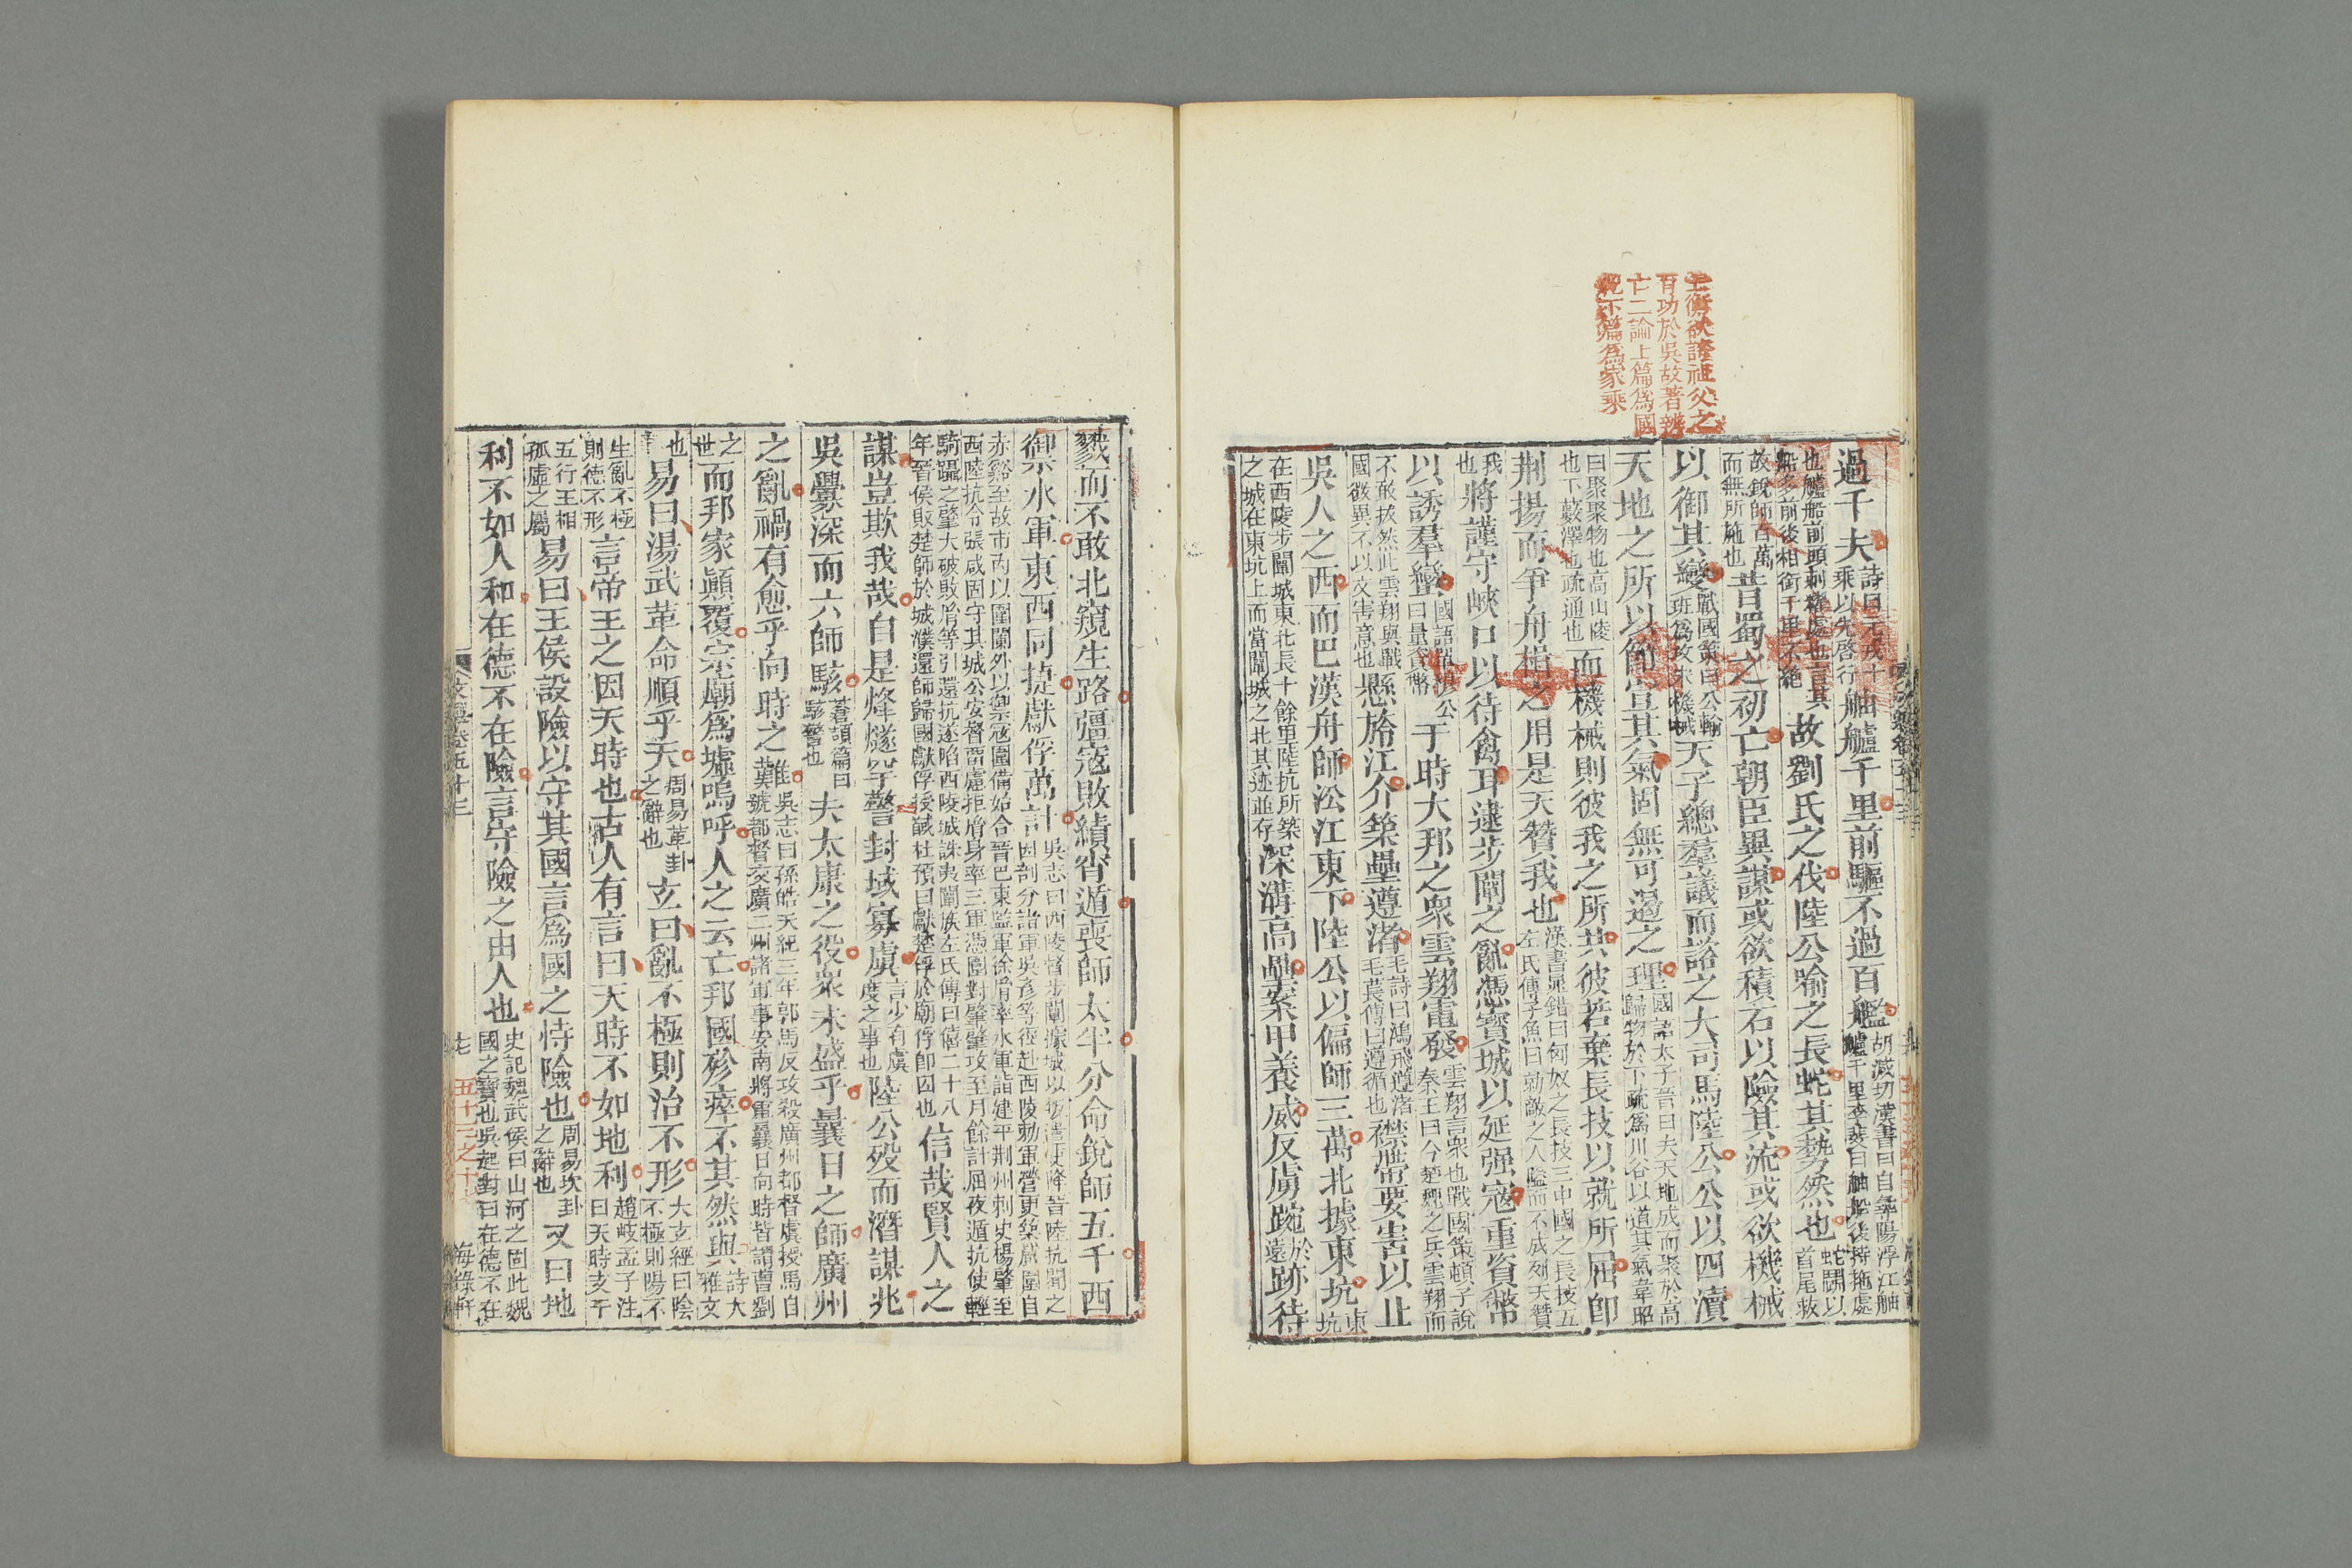 士衡欲誇祖父之
有功於吳故著辨
亡二論上篇爲國
史下篇爲家乘
過千夫詩曰元戎十乘以先啓行舳艫千里前驅不過百艦胡減切漢書曰自尋陽浮江舳艫千里李斐曰舳船後持柂處
也艫船前頭刺櫂處也言其船多前後相銜千里不絶故劉氏之伐陸公喻之長虵其勢然也蛇鬭以首尾救
故銳師百萬而無所施也昔蜀之初亡朝臣異謀或欲積石以險其流或欲機械
以御其變戰國策曰公輸班爲攻宋機械天子總羣議而諮之大司馬陸公公以四瀆
天地之所以節宣其氣固無可遏之理國語太子晉曰夫天地成而聚於高歸物於下疏爲川谷以道其氣韋昭
曰聚聚物也高山陵也下藪澤也疏通也而機械則彼我之所共彼若棄長技以就所屈卽
荆揚而爭舟楫之用是天贊我也漢書晁錯曰匈奴之長技三中國之長技五左氏傳子魚曰勍敵之人隘而不成列天贊
我也將謹守峽口以待禽耳逮步闡之亂憑寶城以延强寇重資幣
以誘羣蠻國語單穆公曰量資幣于時大邦之衆雲翔電發雲翔言衆也戰國策頓子說秦王曰今楚魏之兵雲翔而
不敢拔然此雲翔與戰國微異不以文害意也懸旍江介築壘遵渚毛詩曰鴻飛遵渚毛萇傳曰遵循也襟帶要害以止
吳人之西而巴漢舟師沿江東下陸公以偏師三萬北據東坑東坑
在西陵步闡城東北長十餘里陸抗所築之城在東坑上而當闡城之北其迹並存深溝高壘案甲養威反虜踠於遠跡待
戮而不敢北窺生路彊寇敗績宵遁喪師太半分命銳師五千西
禦水軍東西同捷獻俘萬計吳志曰西陵督步闡據城以叛遣使降晉陸抗聞之因部分諸軍吳彦等徑赴西陵勑軍營更築嚴圍自
赤谿至故市内以圍闡外以禦寇圍備始合晉巴東監軍徐胤率水軍詣建平荆州刺史楊肇至西陵抗令張咸固守其城公安督留慮拒胤身率三軍憑圍對肇肇攻至月餘計屈夜遁抗使輕
騎躡之肇大破敗胤等引還抗遂陷西陵城誅夷闡族左氏傳曰僖二十八年晉侯敗楚師於城濮還師歸國獻俘授馘杜預曰獻楚俘於廟俘卽囚也信哉賢人之
謀豈欺我哉自是烽燧罕警封域寡虞言少有虞度之事也陸公殁而潛謀兆
吳釁深而六師駭蒼頡篇曰駭警也夫太康之役衆未盛乎曩日之師廣州
之亂禍有愈乎向時之難吳志曰孫皓天紀三年郭馬反攻殺廣州都督虞授馬自號都督交廣二州諸軍事安南將軍曩日向時皆謂曹劉
之世而邦家顚覆宗廟爲墟嗚呼人之云亡邦國殄瘁不其然與詩大雅文
也易曰湯武革命順乎天周易革卦之辭也玄曰亂不極則治不形大玄經曰陰不極則陽不
生亂不極則德不形言帝王之因天時也古人有言曰天時不如地利趙岐孟子注曰天時支干
五行王相孤虛之屬易曰王侯設險以守其國言爲國之恃險也周易坎卦之辭也又曰地
利不如人和在德不在險言守險之由人也史記魏武侯曰山河之固此魏國之寶也吳起對曰在德不在
五十三之十七
海錄軒